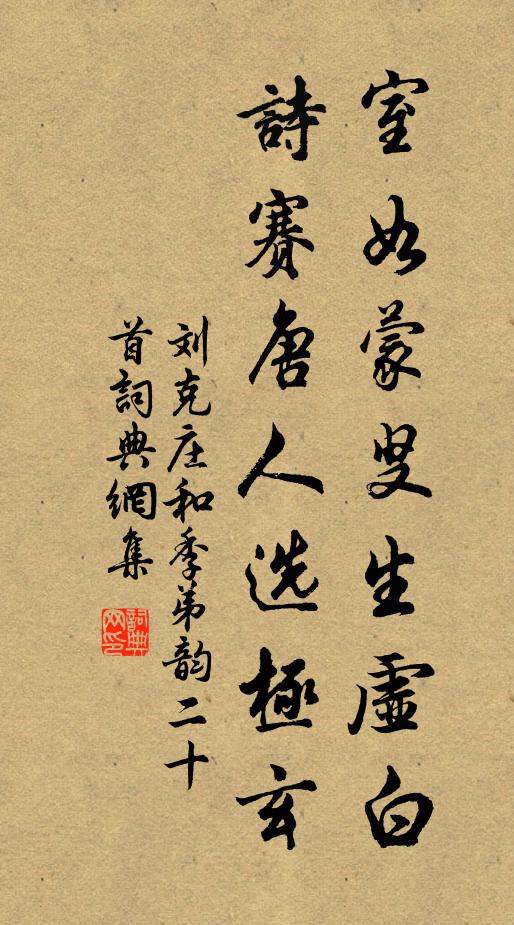 室如蒙叟生虛白
詩賽唐人选極玄
刘克庄和季弟韵二十
首詞典網集
詞典網印